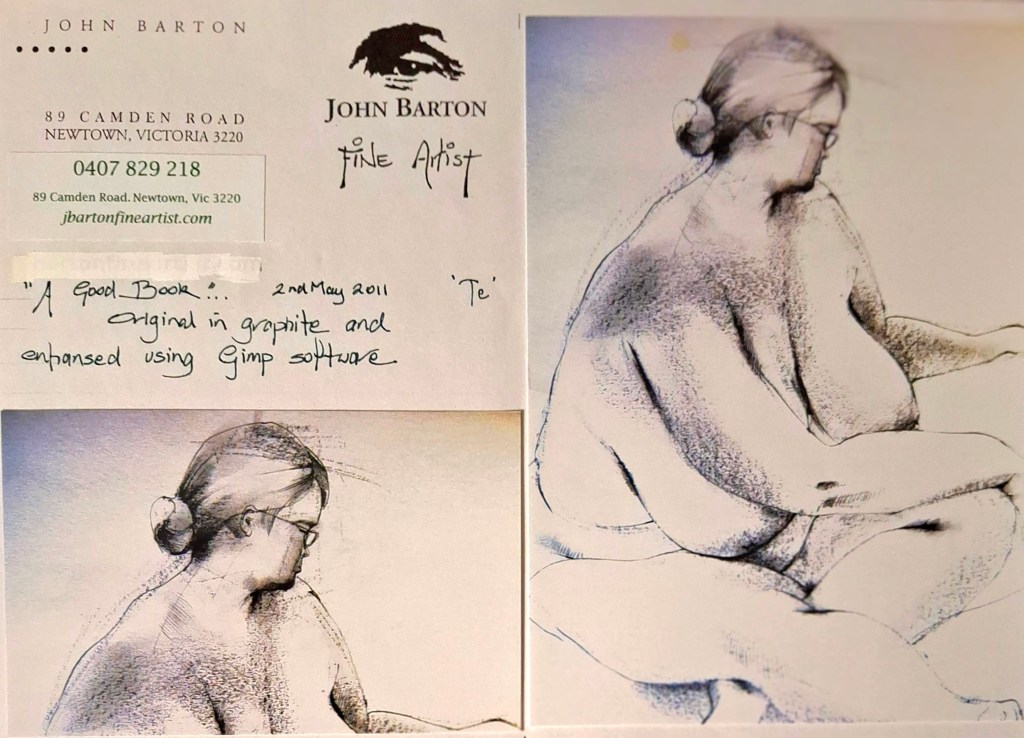 JOHN BARTON
89 CAMDEN ROAD
NEWTOWN, VICTORIA 3220
0407 829 218
89 Camden Road. Newtown, Vic 3220
jbartonfineartist.com
JOHN BARTON
FINE Artist
"A Good Book"... 2nd May 2011 'Te'
Original in graphite and
enhansed using Gimp software